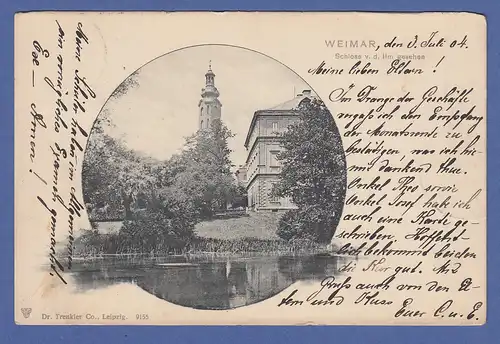 WEIMAR, den 3. Juli 04.
Schloss v. d. Ilm gesehen
Meine lieben Eltern!
Im Drange der Geschäfte
vergass ich den Empfang
der Monatsrente zu
bestätigen, was ich hier
mit dankend thue.
Onkel Theo sowie
Onkel Josef habe ich
auch eine Karte ge
schrieben. Hoffent
lich bekommt beiden
die Kur gut. Mit
Gruss auch von den
dern und Kuss
Euer C. u. E.
haben im Allgem.
ein wenig
Eee — Nerven!
Dr. Trenkler Co., Leipzig. 9155